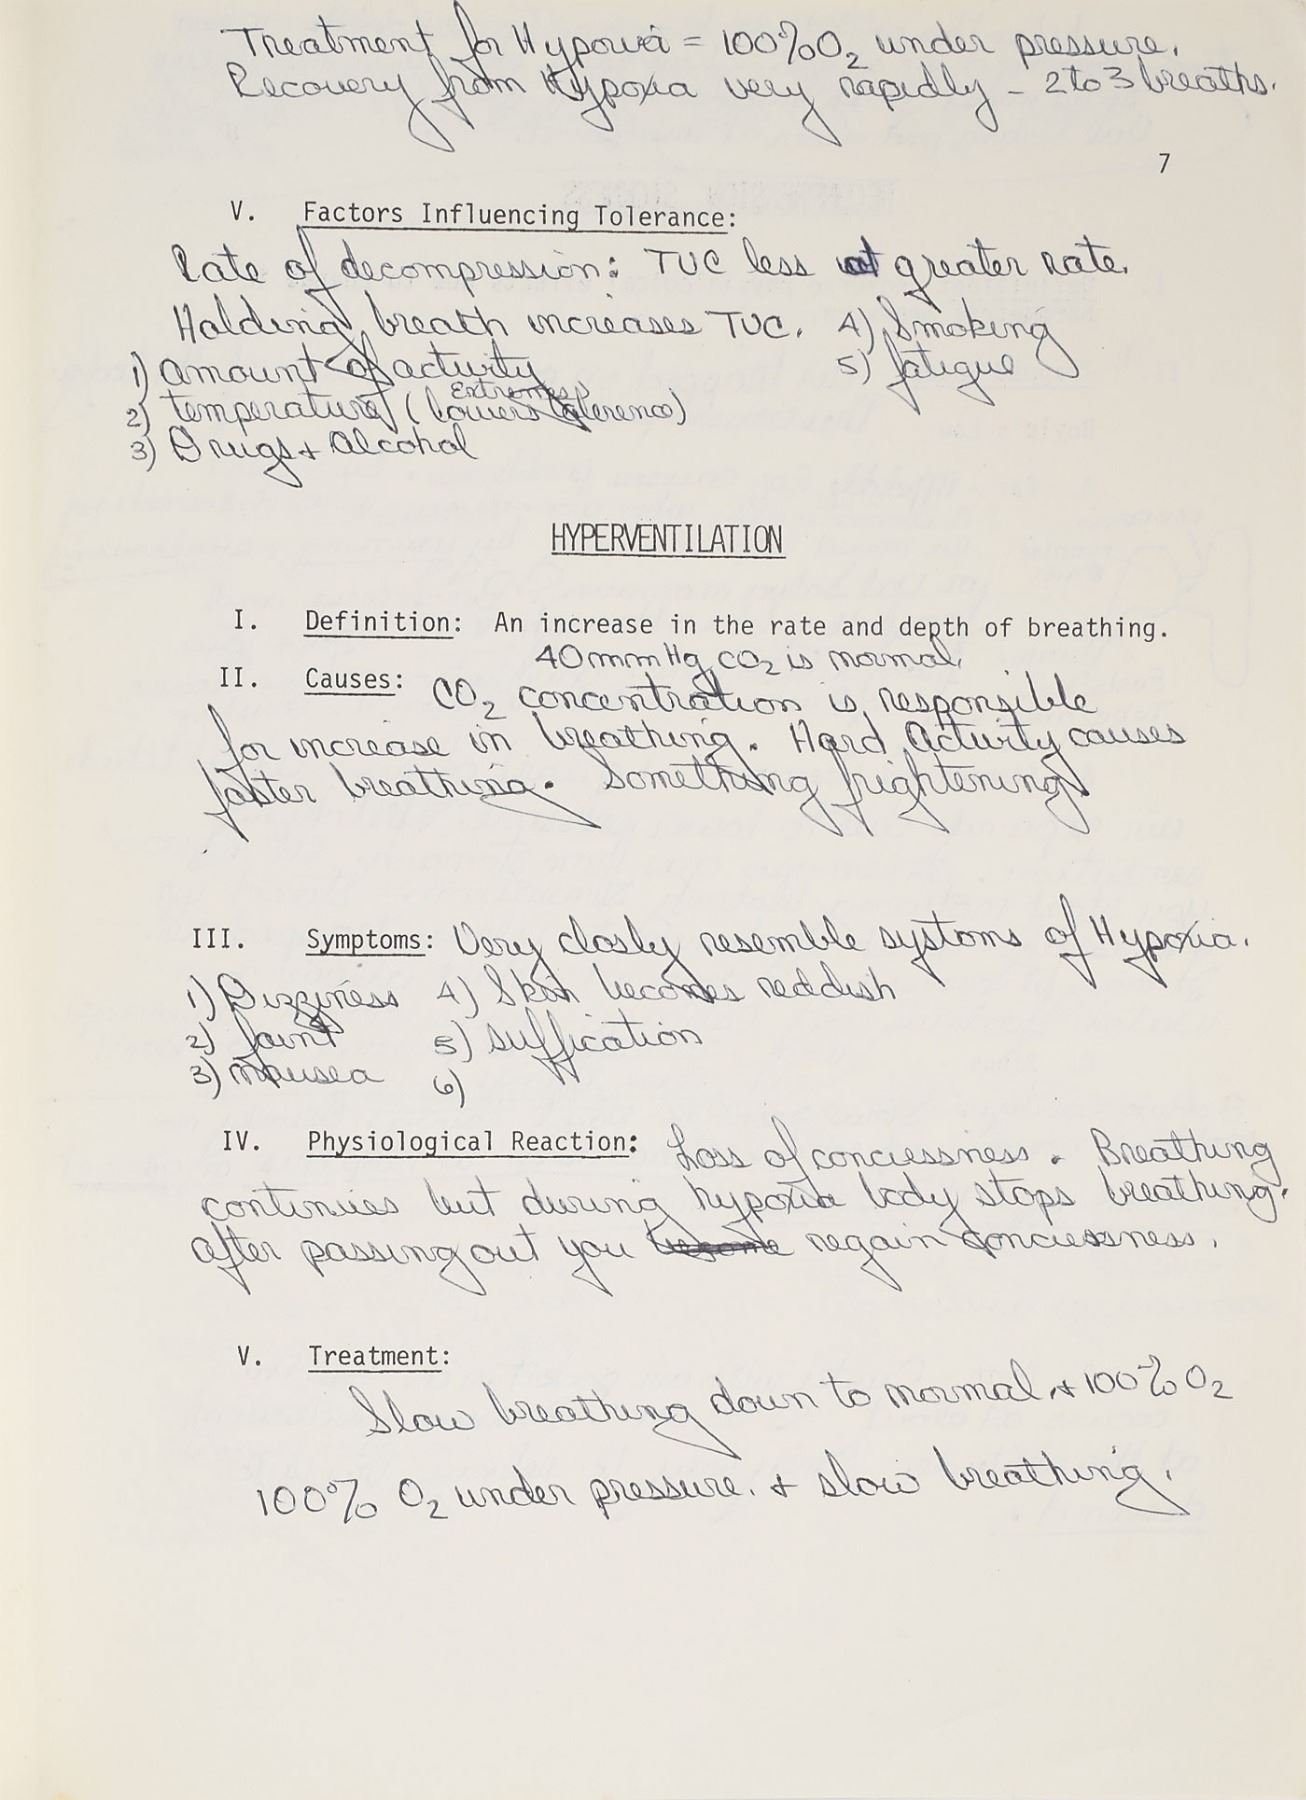 Treatment for Hypoxia = 100% O2 under pressure.
Recovery from Hypoxia very rapidly - 2 to 3 breaths.
7
V. Factors Influencing Tolerance:
Rate of decompression: TUC less at greater rate.
Holding breath increases TUC. 4) Smoking
1) amount of activity 5) fatigue
Extremes
2) temperature (lowers tolerence)
3) Drugs + Alcohol
HYPERVENTILATION
I. Definition: An increase in the rate and depth of breathing.
40 mm Hg CO2 is normal.
II. Causes: CO2 concentration is responsible
for increase in breathing. Hard Activity causes
faster breathing. Something frightening
III. Symptoms: Very closly resemble systoms of Hypoxia.
1) Dizziness 4) Skin becomes reddish
2) faint 5) suffication
3) nausea 6)
IV. Physiological Reaction: Loss of conciessness. Breathing
continues but during hypoxia body stops breathing.
after passing out you become regain conciessness.
V. Treatment:
Slow breathing down to normal + 100% O2
100% O2 under pressure. + slow breathing.